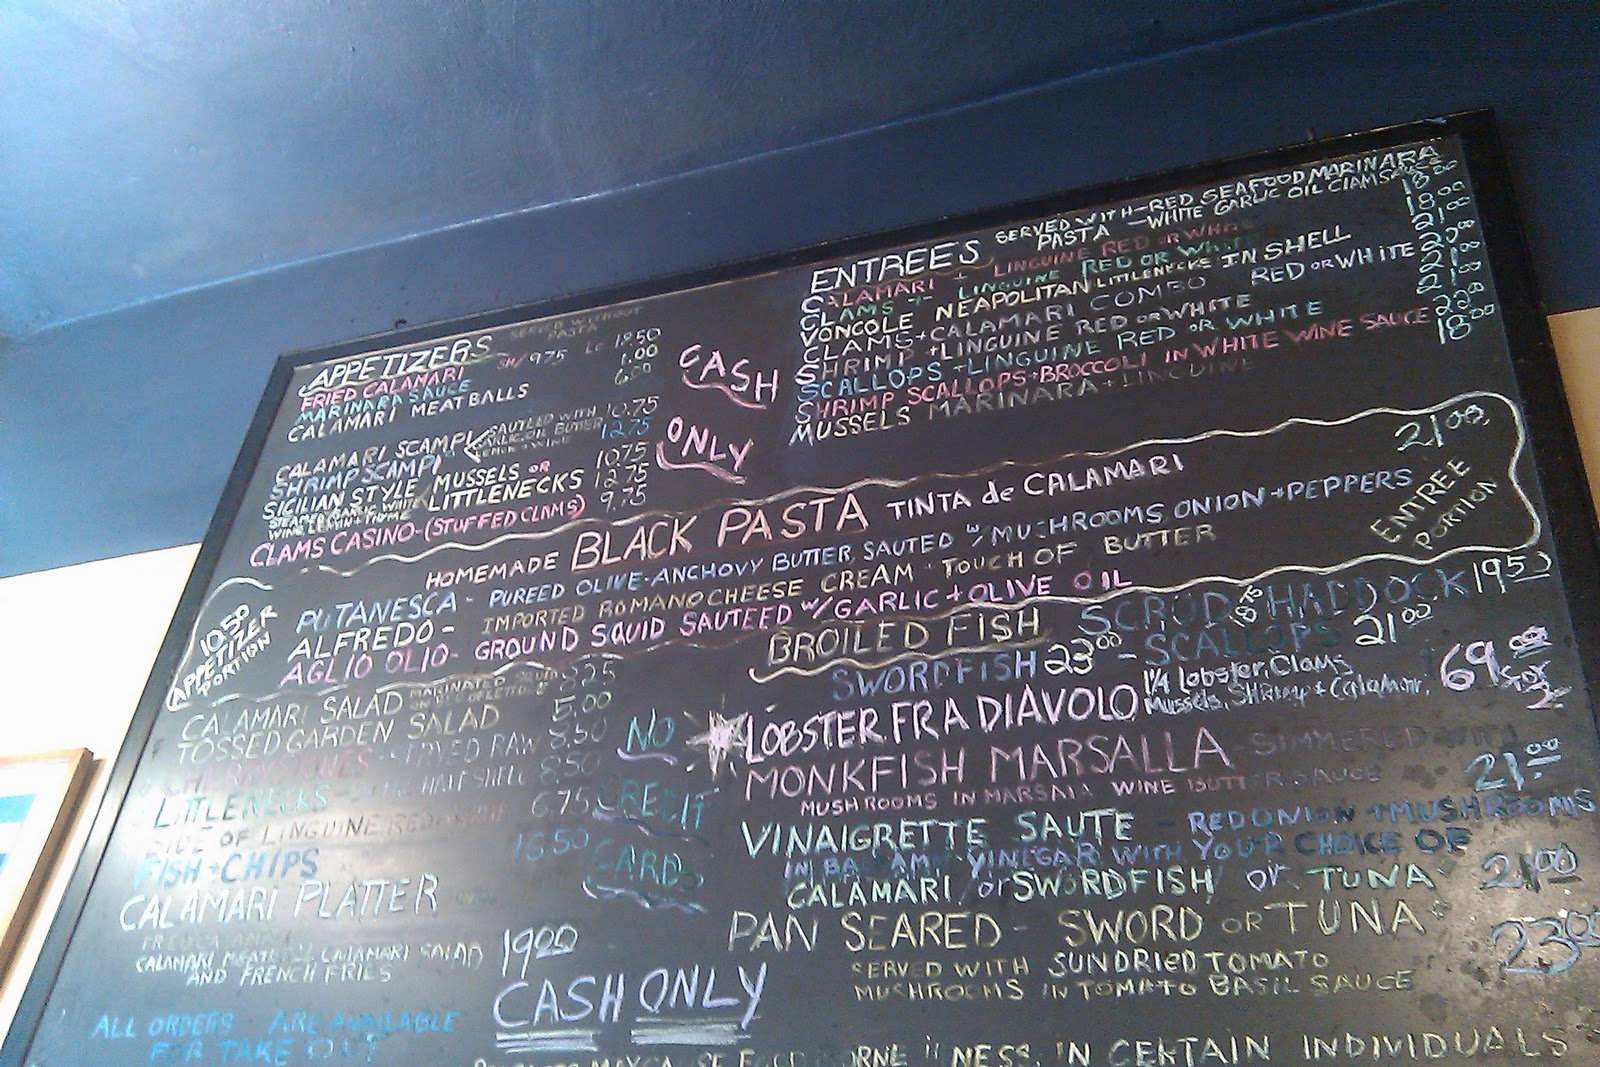 APPETIZERS SERVED WITHOUT PASTA
FRIED CALAMARI SM/9.75 LG 12.50
MARINARA SAUCE 1.00
CALAMARI MEATBALLS 6.00
CALAMARI SCAMPI SAUTLED WITH 10.75
SHRIMP SCAMPI GARLIC, OIL BUTTER 12.75
LEMON + WINE
SICILIAN STYLE MUSSELS OR 10.75
LITTLENECKS 12.75
STEAMED GARLIC WHITE WINE
CLAMS CASINO-(STUFFED CLAMS) 9.75
CASH
ONLY
ENTREES SERVED WITH PASTA -RED SEAFOOD MARINARA
-WHITE GARLIC OIL CLAM SAUCE
CALAMARI + LINGUINE RED OR WHITE 18.00
CLAMS + LINGUINE RED OR WHITE 18.00
VONCOLE NEAPOLITAN LITTLENECKS IN SHELL 21.00
CLAMS + CALAMARI COMBO RED OR WHITE 20.00
SHRIMP + LINGUINE RED OR WHITE 21.00
SCALLOPS + LINGUINE RED OR WHITE 21.00
SHRIMP SCALLOPS + BROCCOLI IN WHITE WINE SAUCE 22.00
MUSSELS MARINARA + LINGUINE 18.00
HOMEMADE BLACK PASTA TINTA de CALAMARI 21.00
PUTANESCA - PUREED OLIVE-ANCHOVY BUTTER, SAUTED W/MUSHROOMS, ONION + PEPPERS
ALFREDO - IMPORTED ROMANO CHEESE CREAM - TOUCH OF BUTTER
AGLIO OLIO - GROUND SQUID SAUTEED W/GARLIC + OLIVE OIL
10.50 APPETIZER PORTION
ENTREE PORTION
CALAMARI SALAD MARINATED SQUID ON BED OF LETTUCE 8.25
TOSSED GARDEN SALAD 5.00
CHERRYSTONES - FRIED RAW 8.50
LITTLENECKS - HALF SHELL 8.50
SIDE OF LINGUINE RED OR WHITE 6.75
FISH + CHIPS 16.50
CALAMARI PLATTER
FRIED CALAMARI
CALAMARI MEATBALL, CALAMARI SALAD 19.00
AND FRENCH FRIES
NO
CREDIT
CARDS
CASH ONLY
ALL ORDERS ARE AVAILABLE
FOR TAKE OUT
BROILED FISH SCROD HADDOCK 19.50
SWORDFISH 23.00 - SCALLOPS 21.00
LOBSTER FRA DIAVOLO 1 1/4 Lobster, Clams
Mussels, Shrimp + Calamari, 69.00 for 2
MONKFISH MARSALLA - SIMMERED WITH
MUSHROOMS IN MARSALA WINE BUTTER SAUCE 21.00
VINAIGRETTE SAUTE - RED ONION + MUSHROOMS
IN BALSAMIC VINEGAR WITH YOUR CHOICE OF
CALAMARI / or SWORDFISH / or TUNA 21.00
PAN SEARED - SWORD OR TUNA 23.00
SERVED WITH SUNDRIED TOMATO
MUSHROOMS IN TOMATO BASIL SAUCE
NESS. IN CERTAIN INDIVIDUALS